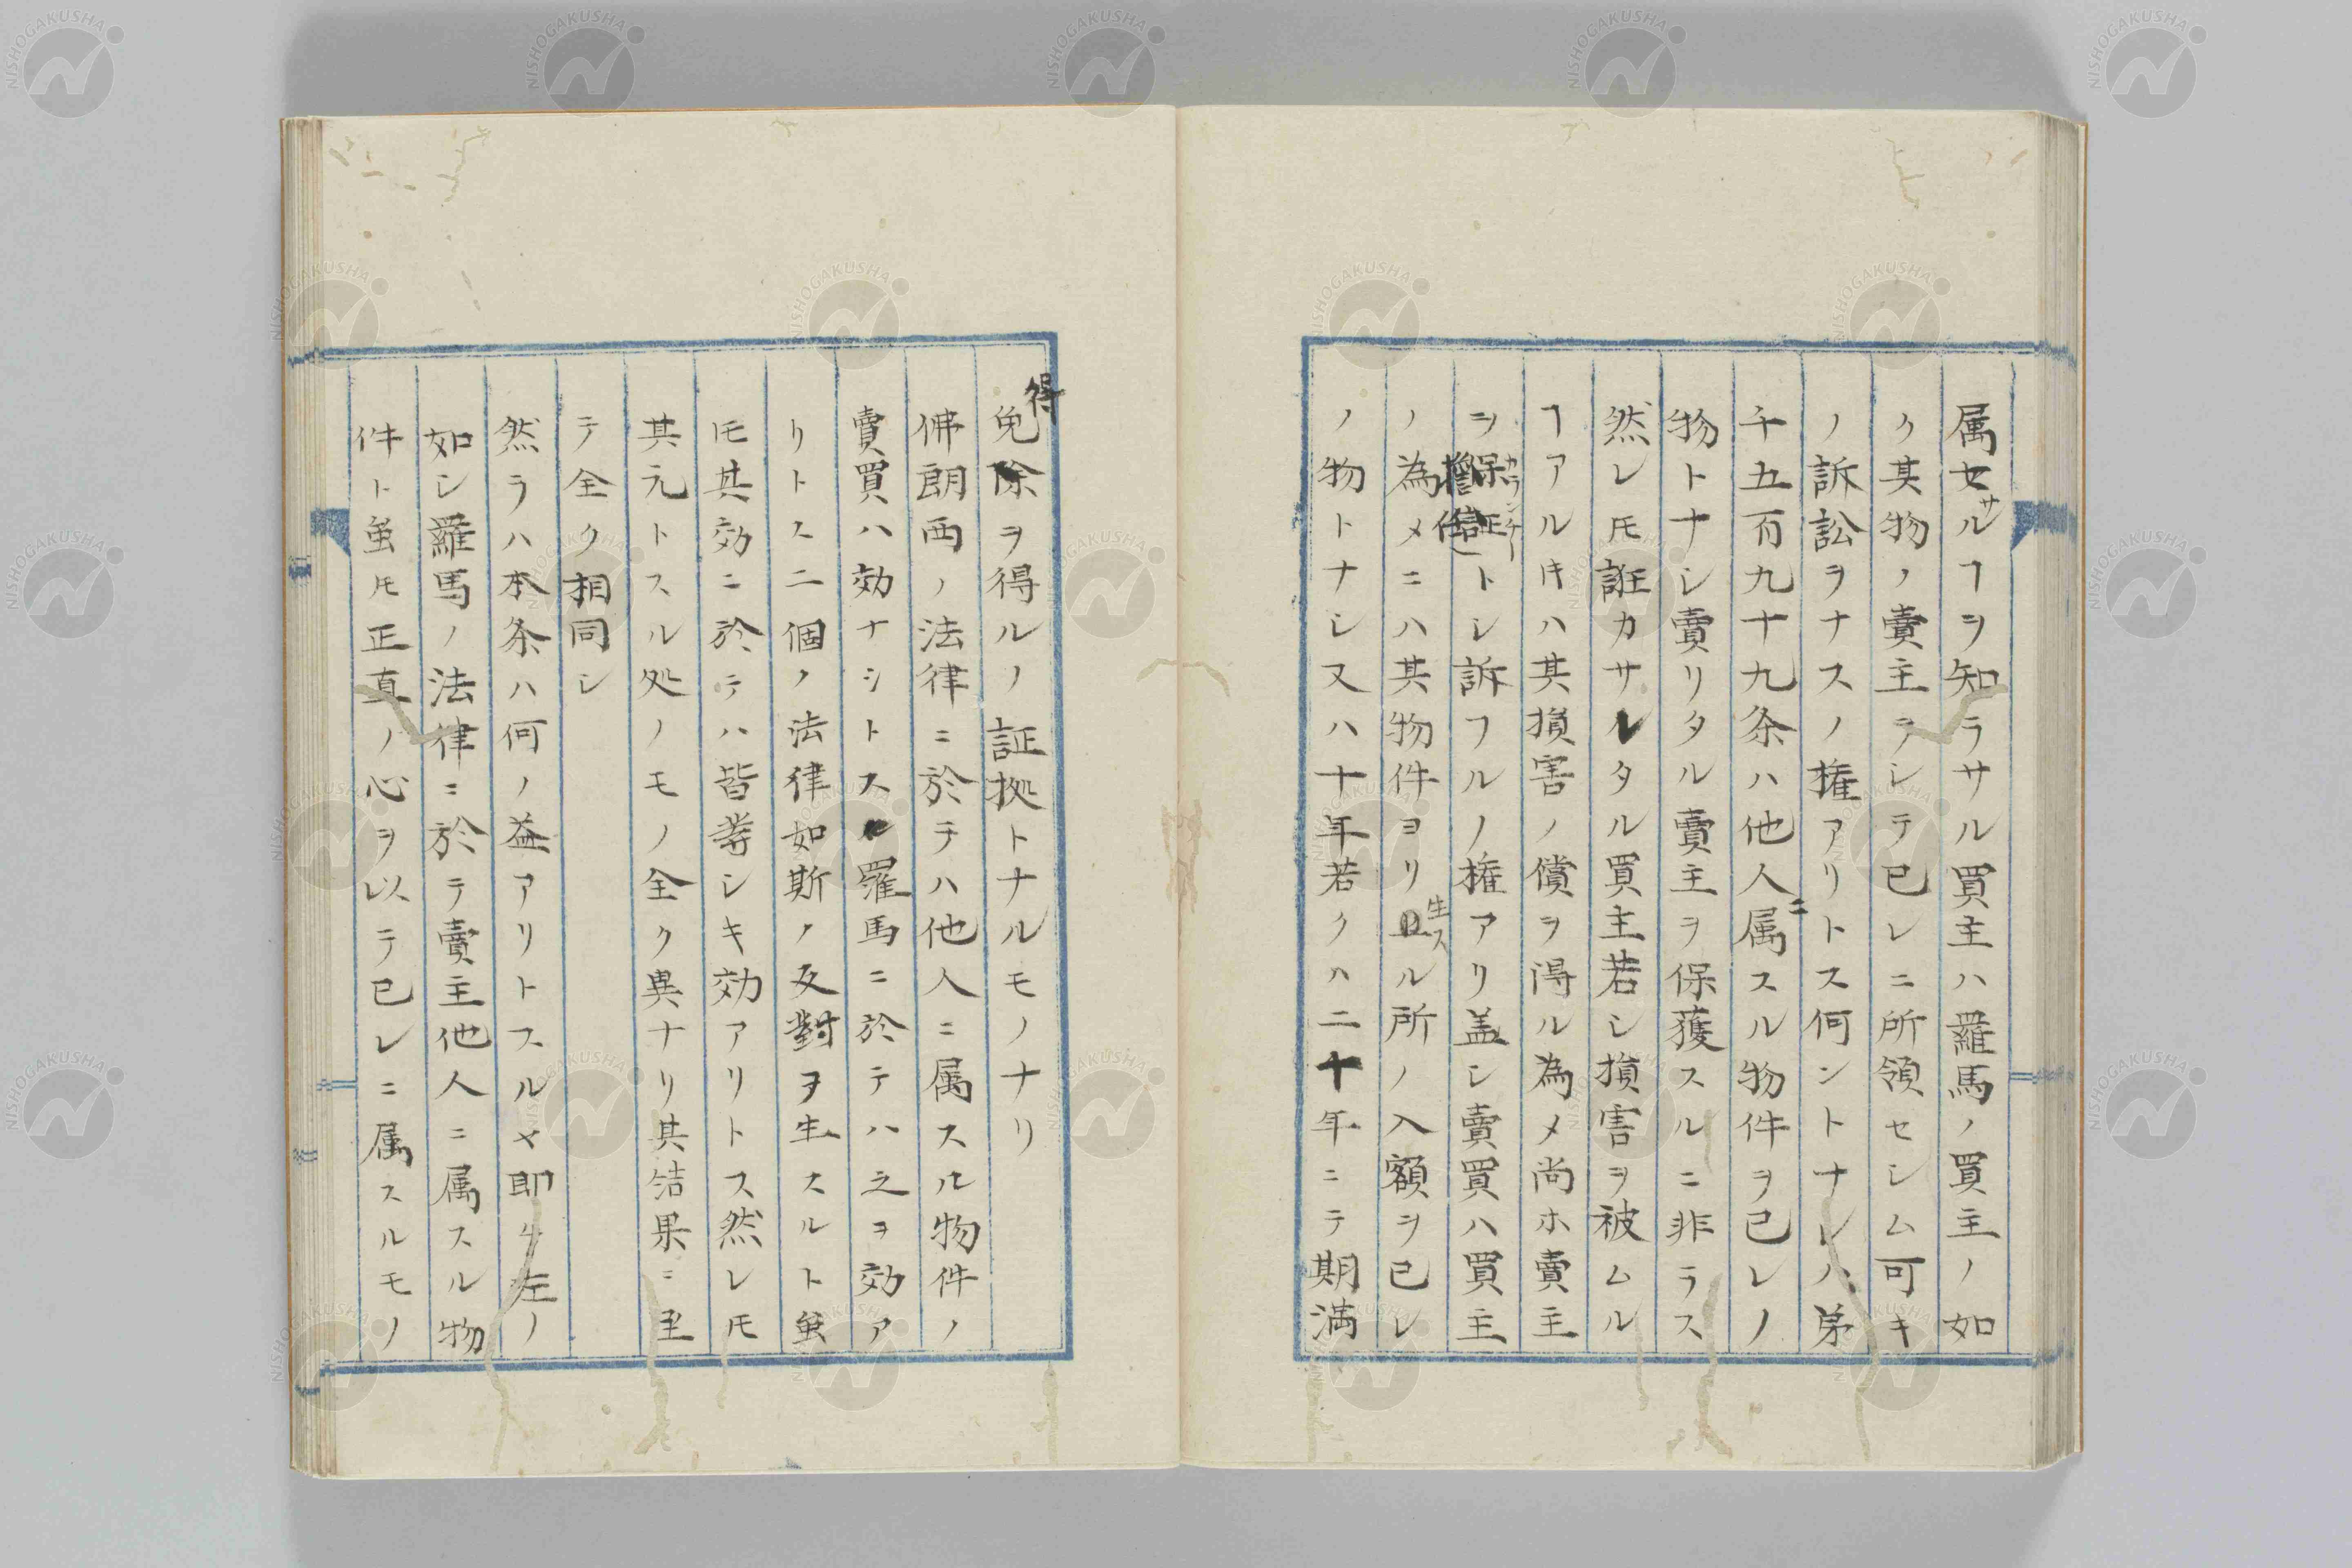 属セサルヿヲ知ラサル買主ハ羅馬ノ買主ノ如
ク其物ノ賣主ヲシテ已レニ所領セシム可キ
ノ訴訟ヲナスノ権アリトス何ントナレハ第
千五百九十九条ハ他人ニ属スル物件ヲ已レノ
物トナシ賣リタル賣主ヲ保獲スルニ非ラス
然レ𪜈誑カサルタル買主若シ損害ヲ被ムル
ヿアルキハ其損害ノ償ヲ得ル為メ尚ホ賣主
ヲ保証カランケートシ訴フルノ権アリ盖シ賣買ハ買主
ノ為メニハ其物件ヨリ生スル所ノ入額ヲ已レ
ノ物トナシ又ハ十年若クハ二十年ニテ期満
得
免除ヲ得ルノ証拠トナルモノナリ
佛朗西ノ法律ニ於テハ他人ニ属スル物件ノ
賣買ハ効ナシトス羅馬ニ於テハ之ヲ効ア
リトス二個ノ法律如斯ノ反對ヲ生スルト雖
𪜈其効ニ於テハ皆等シキ効アリトス然レ𪜈
其元トスル処ノモノ全ク異ナリ其結果ニ至
テ全ク相同シ
然ラハ本条ハ何ノ益アリトスルヤ即チ左ノ
如シ羅馬ノ法律ニ於テ賣主他人ニ属スル物
件ト雖𪜈正真ノ心ヲ以テ已レニ属スルモノ
NISHOGAKUSHA